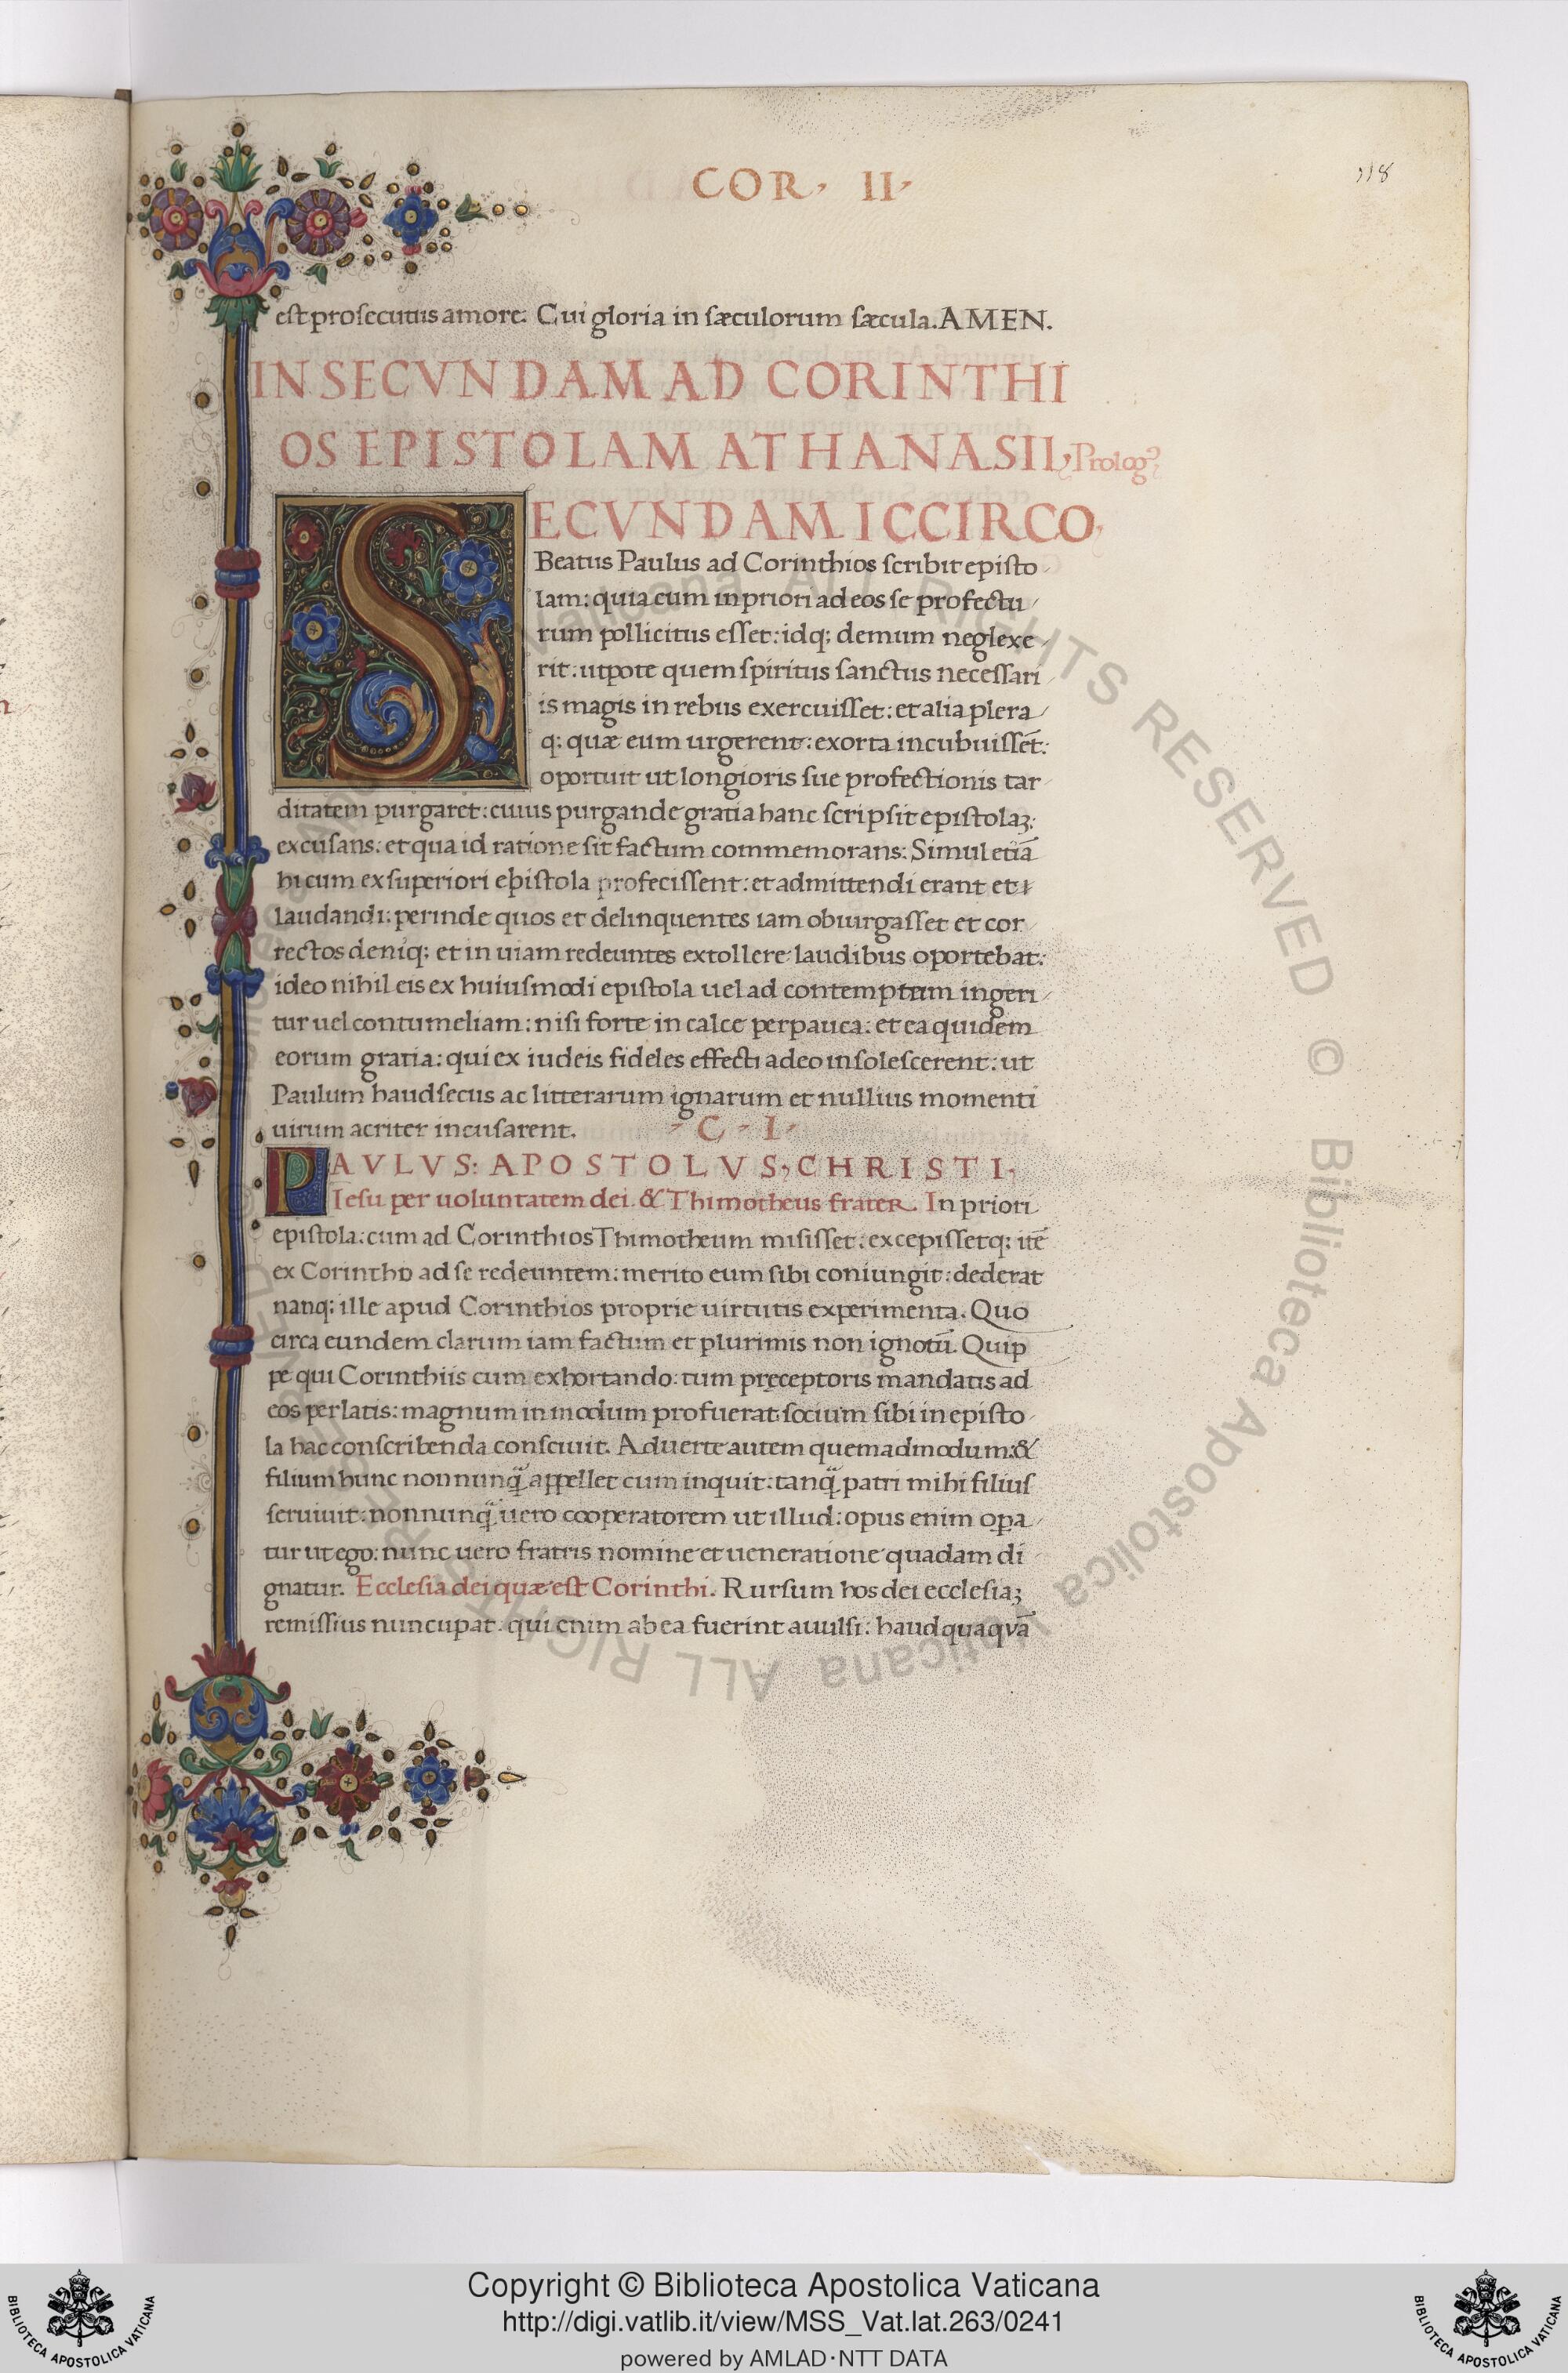 COR, II,
118
est prosecutus amore. Cui gloria in sæculorum sæcula. AMEN.
IN SECVNDAM AD CORINTHI
OS EPISTOLAM ATHANASII, Prolog⁹
SECVNDAM ICCIRCO,
Beatus Paulus ad Corinthios scribit episto
lam: quia cum in priori ad eos se profectu
rum pollicitus esset: idq; demum neglexe
rit: utpote quem spiritus sanctus necessari
is magis in rebus exercuisset: et alia plera
q: quæ eum urgerent: exorta incubuissēt:
oportuit ut longioris sue profectionis tar
ditatem purgaret: cuius purgande gratia hanc scripsit epistolaꝫ:
excusans: et qua id ratione sit factum commemorans: Simul etiā
hi cum ex superiori epistola profecissent: et admittendi erant et
laudandi: perinde quos et delinquentes iam obiurgasset et cor
rectos deniq; et in uiam redeuntes extollere laudibus oportebat:
ideo nihil eis ex huiusmodi epistola uel ad contemptum ingeri
tur uel contumeliam: nisi forte in calce perpauca: et ea quidem
eorum gratia: qui ex iudeis fideles effecti adeo insolescerent: ut
Paulum haud secus ac litterarum ignarum et nullius momenti
uirum acriter incusarent. - C - I -
PAVLVS: APOSTOLVS, CHRISTI,
Iesu per uoluntatem dei. & Thimotheus frater. In priori
epistola: cum ad Corinthios Thimotheum misisset: excepissetq; itē
ex Corintho ad se redeuntem: merito eum sibi coniungit: dederat
nanq; ille apud Corinthios proprie uirtutis experimenta. Quo
circa eundem clarum iam factum et plurimis non ignotū. Quip
pe qui Corinthiis cum exhortando: tum pręceptoris mandatis ad
eos perlatis: magnum in modum profuerat socium sibi in episto
la hac conscribenda consciuit. Aduerte autem quemadmodum: &
filium hunc nonnunq̃ appellet cum inquit: tanq̃ patri mihi filius
seruiuit: nonnunq̃ uero cooperatorem ut illud: opus enim oꝑa
tur ut ego: nunc uero fratris nomine et ueneratione quadam di
gnatur. Ecclesia dei quæ est Corinthi. Rursum hos dei ecclesiaꝫ
remissius nuncupat. qui enim ab ea fuerint auulsi: haudquaqvā
Copyright © Biblioteca Apostolica Vaticana
http://digi.vatlib.it/view/MSS_Vat.lat.263/0241
powered by AMLAD·NTT DATA
BIBLIOTECA APOSTOLICA VATICANA
BIBLIOTECA APOSTOLICA VATICANA